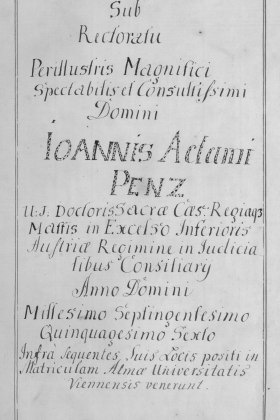 Sub
Rectoratu
Perillustris Magnifici
Spectabilis et Consultissimi
Domini
IOANNIS Adami
PENZ
U: J. Doctoris Sacræ Cæs: Regiaqs
Mattis in Excelso Inferioris
Austriæ Regimine in Iudicia
libus Consiliary
Anno Domini
Millesimo Septingentesimo
Quinquagesimo Sexto
Infrà sequentes, Suis Locis positi in
Matriculam Almæ Universitatis
Viennensis venerunt.